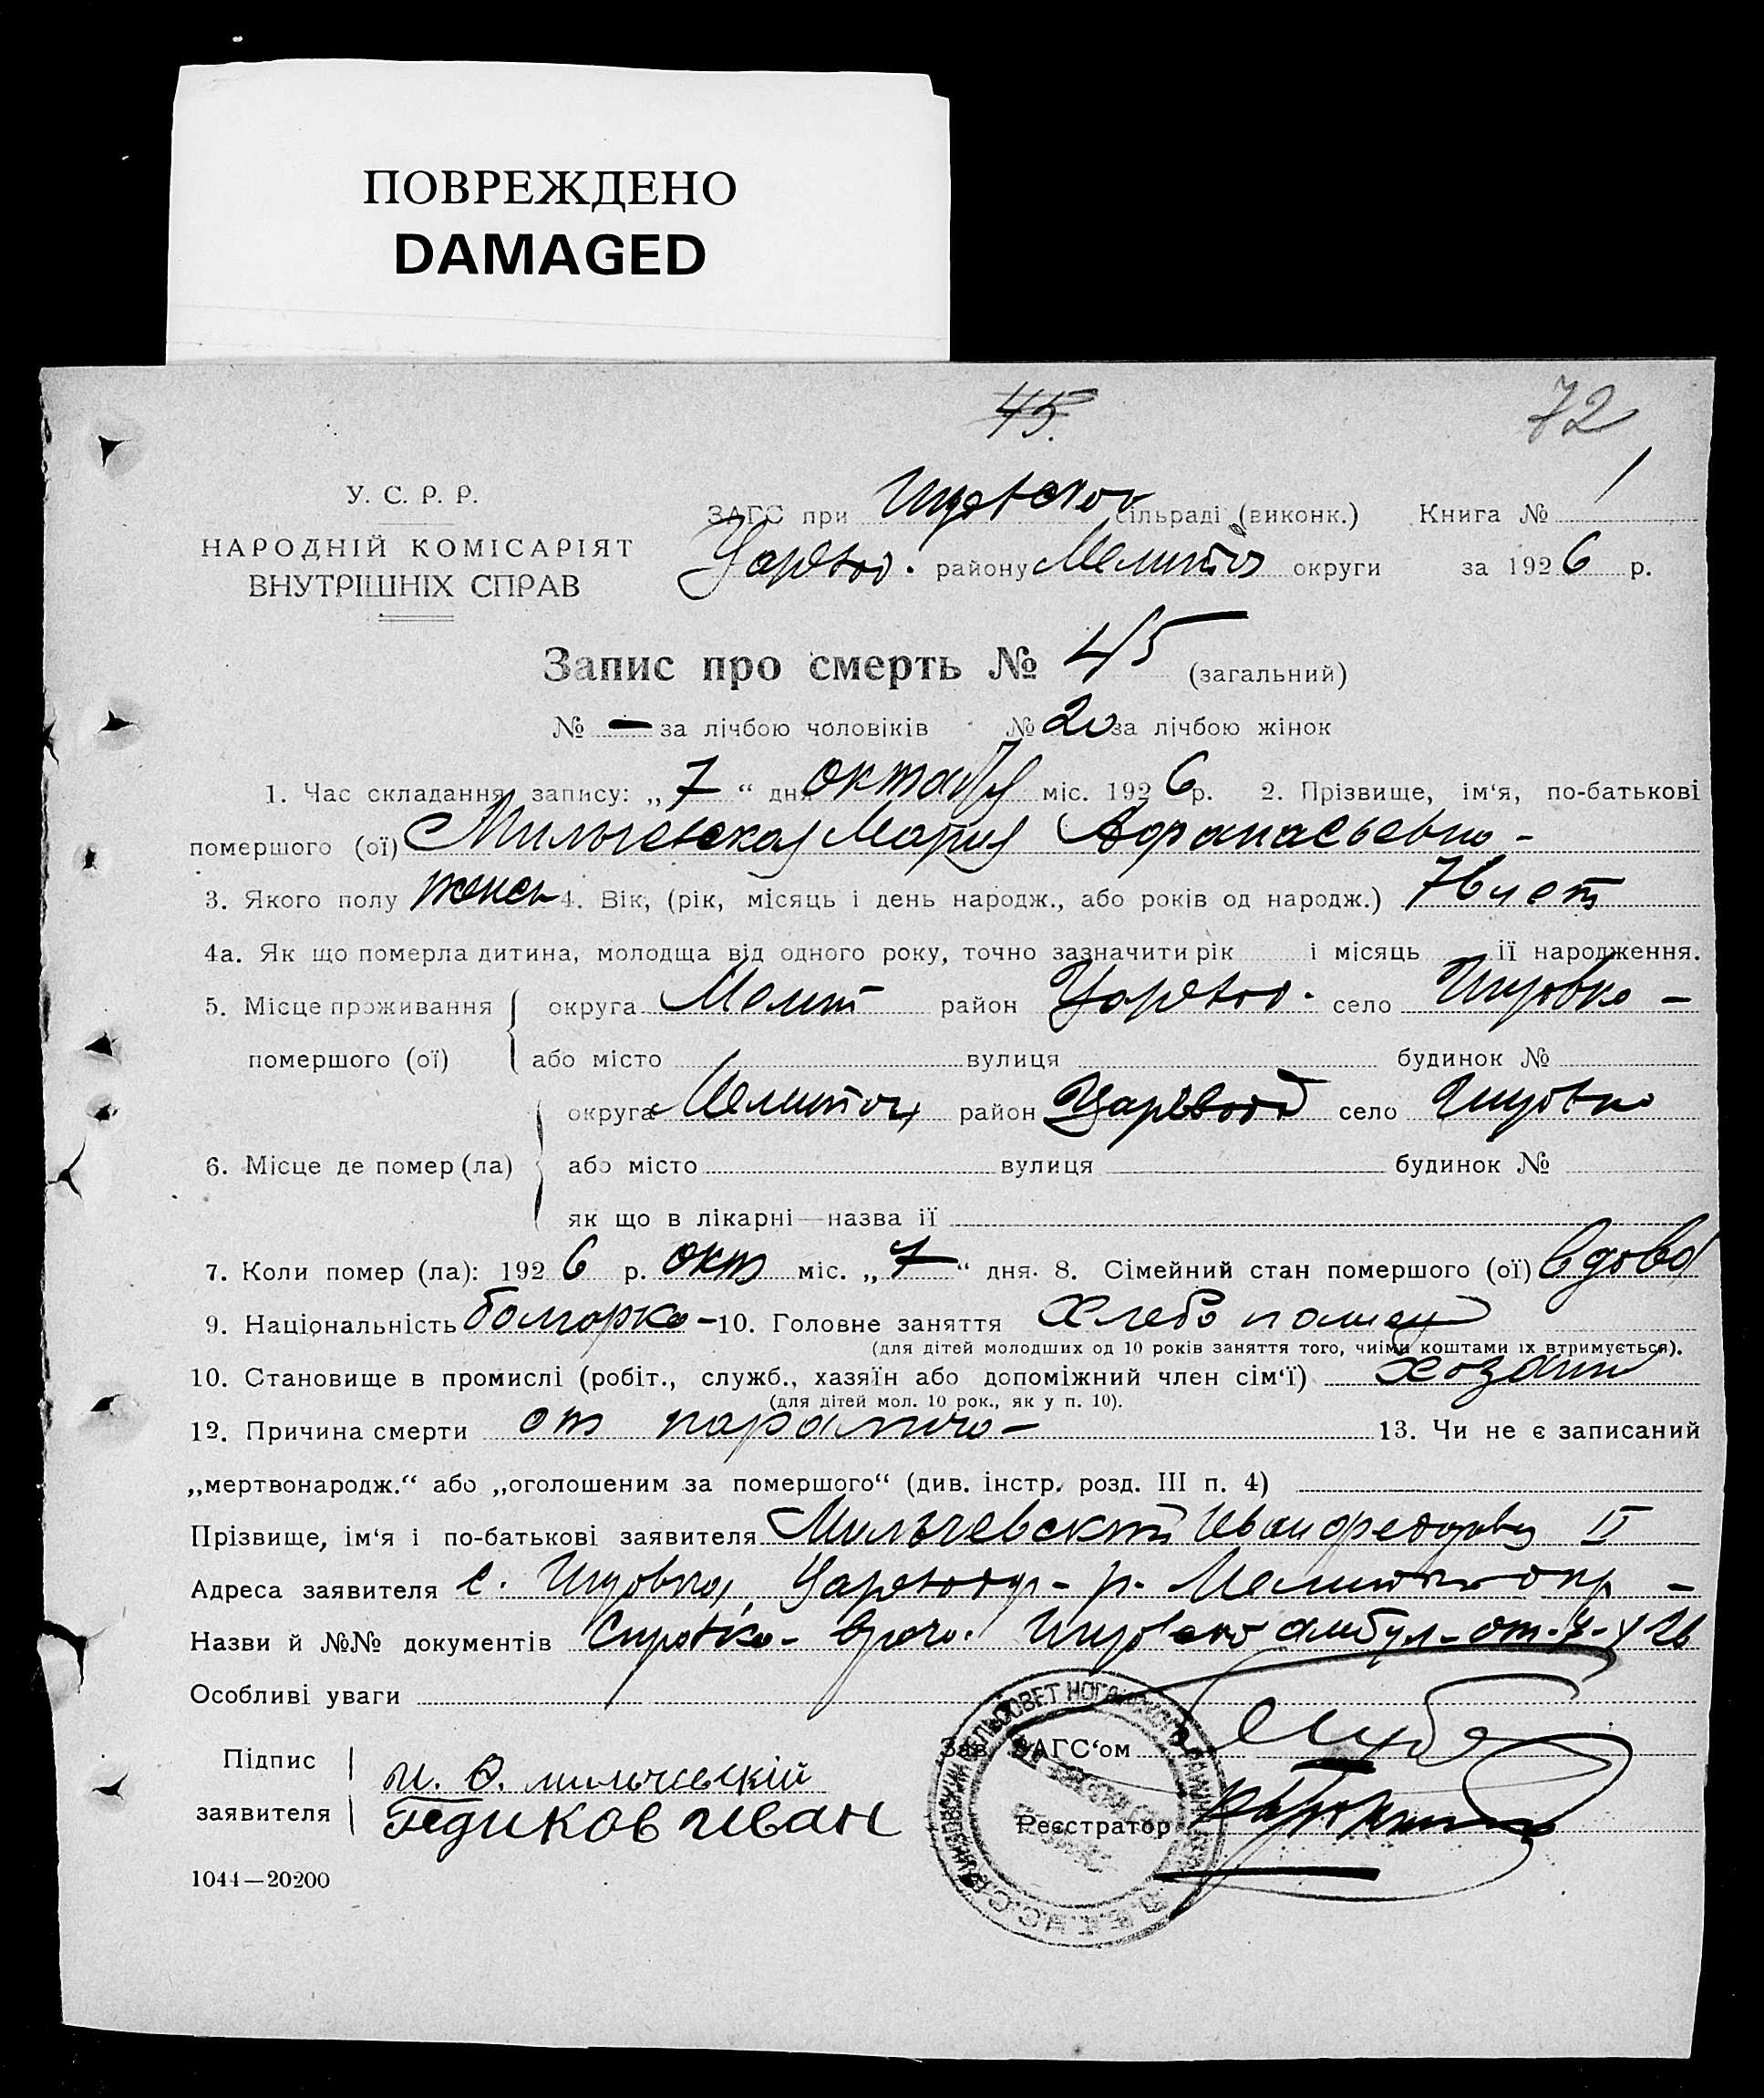 ПОВРЕЖДЕНО
DAMAGED
45.
72
У. С. Р. Р.
НАРОДНІЙ КОМІСАРІЯТ
ВНУТРІШНІХ СПРАВ
ЗАГС при сільраді (виконк.) Книга № 1
района Мелитоп округи за 1926 р.
Запис про смерть № 45 (загальний)
№ — за лічбою чоловіків № 20 за лічбою жінок
1. Час складання запису: „7“ дня октября міс. 1926 р. 2. Прізвище, ім‘я, по-батькові
помершого (ої) Мильчевская Мария Афанасьевна -
3. Якого полу женск 4. Вік, (рік, місяць і день народж., або років од народж.) 76 лет
4а. Як що померла дитина, молодща від одного року, точно зазначити рік і місяць її народження.
5. Місце проживання округа Мелит район Царевод. село -
помершого (ої) або місто вулиця будинок №
округа Мелитоп район Царевод село
6. Місце де помер (ла) або місто вулиця будинок №
як що в лікарні—назва її
7. Коли помер (ла): 1926 р. окт міс. „7“ дня. 8. Сімейний стан помершого (ої) вдова
9. Національність болгарка - 10. Головне заняття Хлебопашец
(для дітей молодших од 10 років заняття того, чиїми коштами їх втримується).
10. Становище в промислі (робіт., служб., хазяїн або допоміжний член сім‘ї) хозяин
(для дітей мол. 10 рок., як у п. 10).
12. Причина смерти от паралича - 13. Чи не є записаний
„мертвонародж.“ або „оголошеним за помершого“ (див. інстр. розд. III п. 4)
Прізвище, ім‘я і по-батькові заявителя Мильчевский Иван Федоров II
Адреса заявителя с. р.
Назви й №№ документів Справка врача амбул- от-7-X 26
Особливі уваги
Підпис
заявителя
И. Ф. мильчевскій
Гедиков Иван
Зав. ЗАГС‘ом
Реєстратор
1044—20200